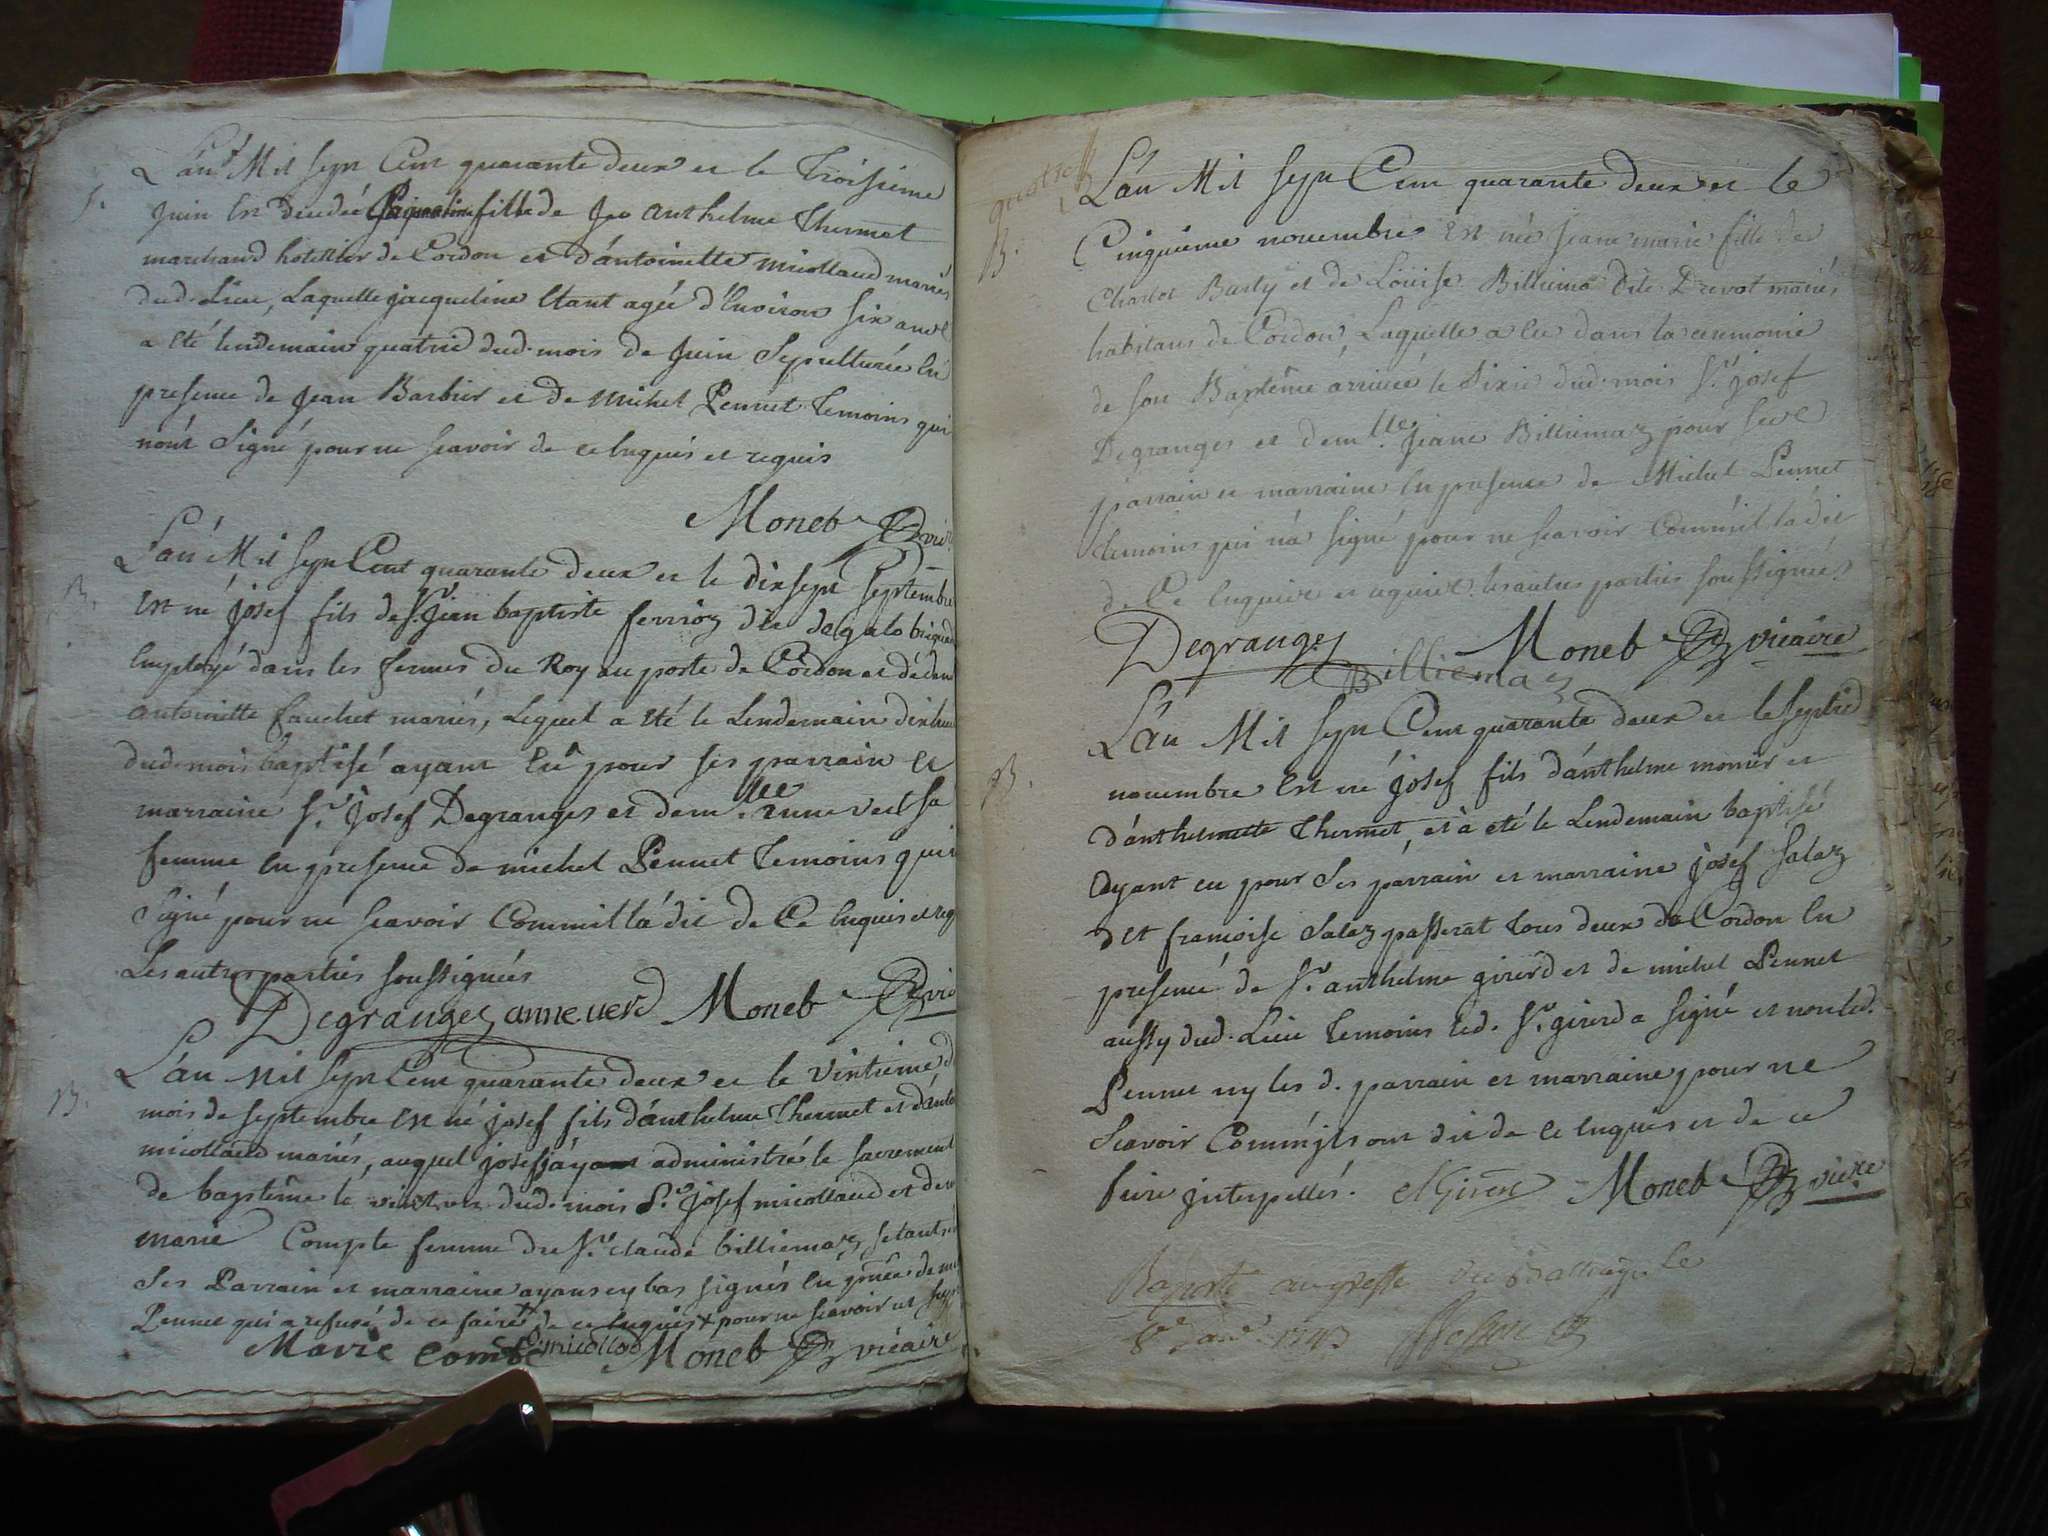 L'an Mil sept Cent quarante deux et le Troisieme
S.
juin est decedée Jaqueline fille de Sr anthelme Thermet
marchand hotellier de Cordon et d'antoinette micollaud mariés
dud. Lieu, Laquelle jacqueline Etant agée d'Environ six ans
a eté lendemain quatrie dud. mois de juin Sepulturée En
presence de jean Barbier et de Michel Pennet temoins qui
n'ont Signé pour ne scavoir de ce Enquis et requis
Moneb vic
L'an Mil sept Cent quarante deux et le dixsept septembre
B.
Est né josef fils de Sr. jean baptiste ferroz dit de galo
Employé dans les fermes du Roy au poste de Cordon et de
antoinette fauchet mariés, Lequel a eté le Lendemain dixhui
dud. mois baptisé ayant Eu pour ses parrain et
marraine Sr. josef Degranges et demlle anne verd sa
femme En presence de michel Pennet temoins qui
signé pour ne scavoir Comm'il l'a dit de Ce Enquis et req
Les autres parties soussignées
Degranges anne uerd Moneb vic
L'an Mil sept Cent quarante deux et le vintieme d
B.
mois de septembre est né josef fils d'anthelme Thermet et d'anto
micollaud mariés, auquel josef j'ay administré le sacrement
de baptême le vint un dud. mois Sr. josef micollaud et dem
marie Compte femme du Sr. claude billiemaz, setant
ses Parrain et marraine ayans cy bas signés En pnce de mi
Pennet qui a refusé de ce faire de ce Enquis pour ne scavoir et
Marie comte micollod Moneb vicaire
quatre
L'an Mil sept Cent quarante deux et le
B.
Cinquieme novembre Est née jeane marie fille de
Charlot Barly et de Louise Billiema dite Drevot mariés
habitans de Cordon, Laquelle a Eu dans la ceremonie
de son Baptême arrivée le sixie dud. mois Sr. josef
Degranges et demlle jeane Billiemaz pour ses
parrain et marraine En presence de Michel Pennet
temoins qui n'a signé pour ne scavoir Comm'il l'a dit
de Ce Enquis et requis les autres parties soussignées
Degranges Billiemaz Moneb vicaire
L'an Mil sept Cent quarante deux et le septie
B.
novembre Est né josef fils d'anthelme monier et
d'anthelmette Thermet, et a eté le Lendemain baptisé
ayant eu pour ses parrain et marraine josef salaz
et francoise salaz passerat tous deux de Cordon En
presence de Sr. anthelme girerd et de michel Pennet
aussy dud. Lieu temoins led. Sr. girerd a signé et non led.
Pennet ny les d. parrain et marraine pour ne
scavoir Comm'ils ont dit de ce Enquis et de ce
faire jnterpellés. Girerd Moneb vicre
Raporté au greffe
1743